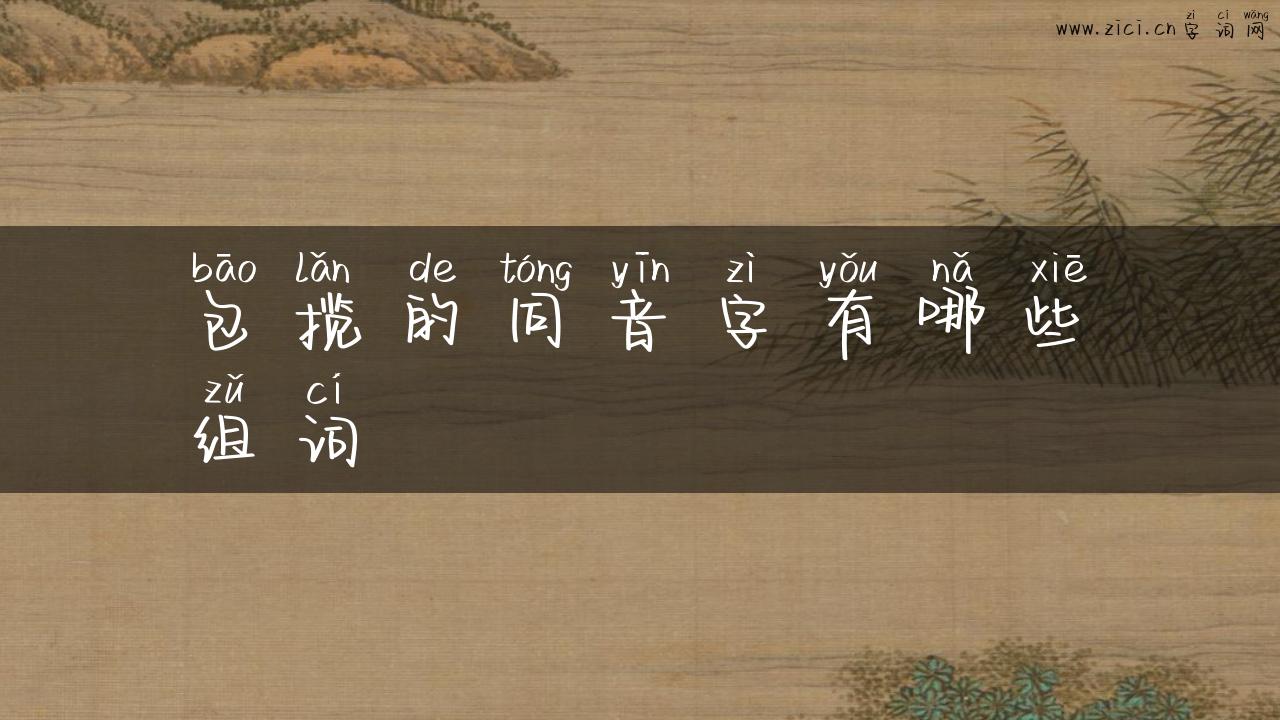 zì cí wǎng
www.zici.cn 字词网
bāo lǎn de tóng yīn zì yǒu nǎ xiē
包揽的同音字有哪些
zǔ cí
组词